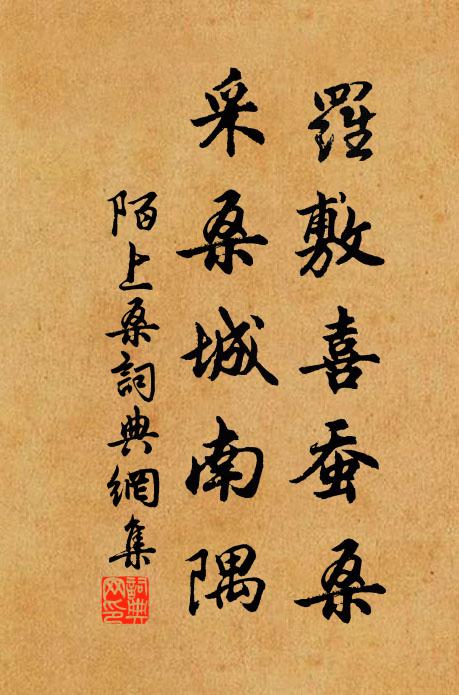 羅敷喜蚕桑
采桑城南隅
陌上桑詞典網集
詞典网印